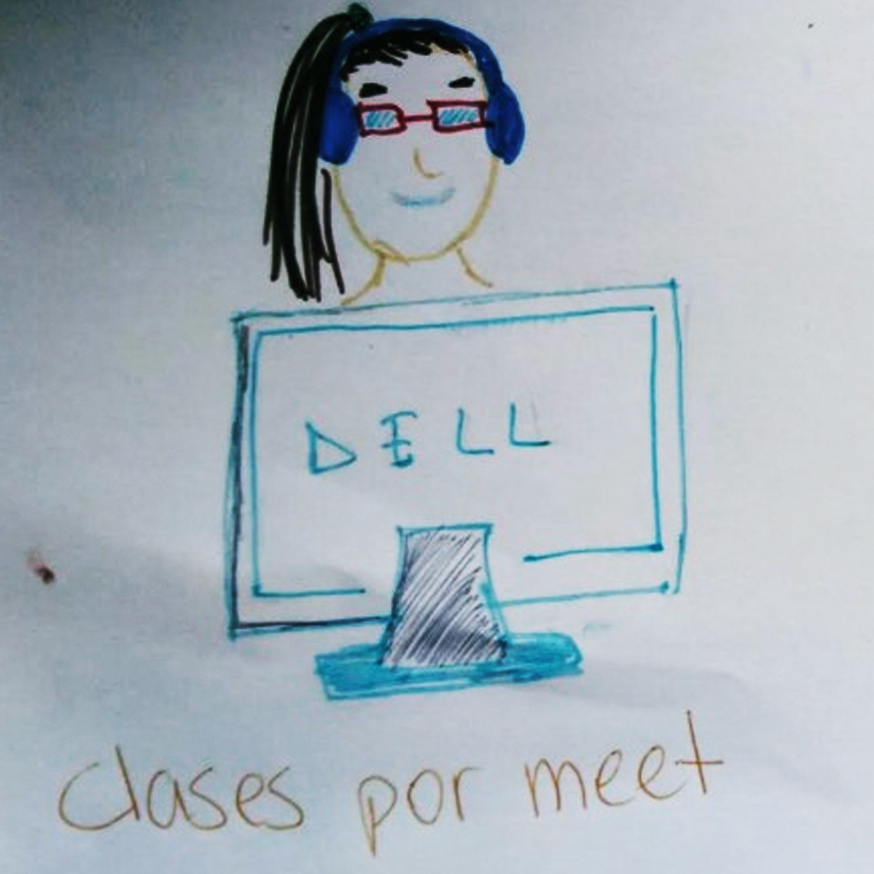 DELL
clases por meet